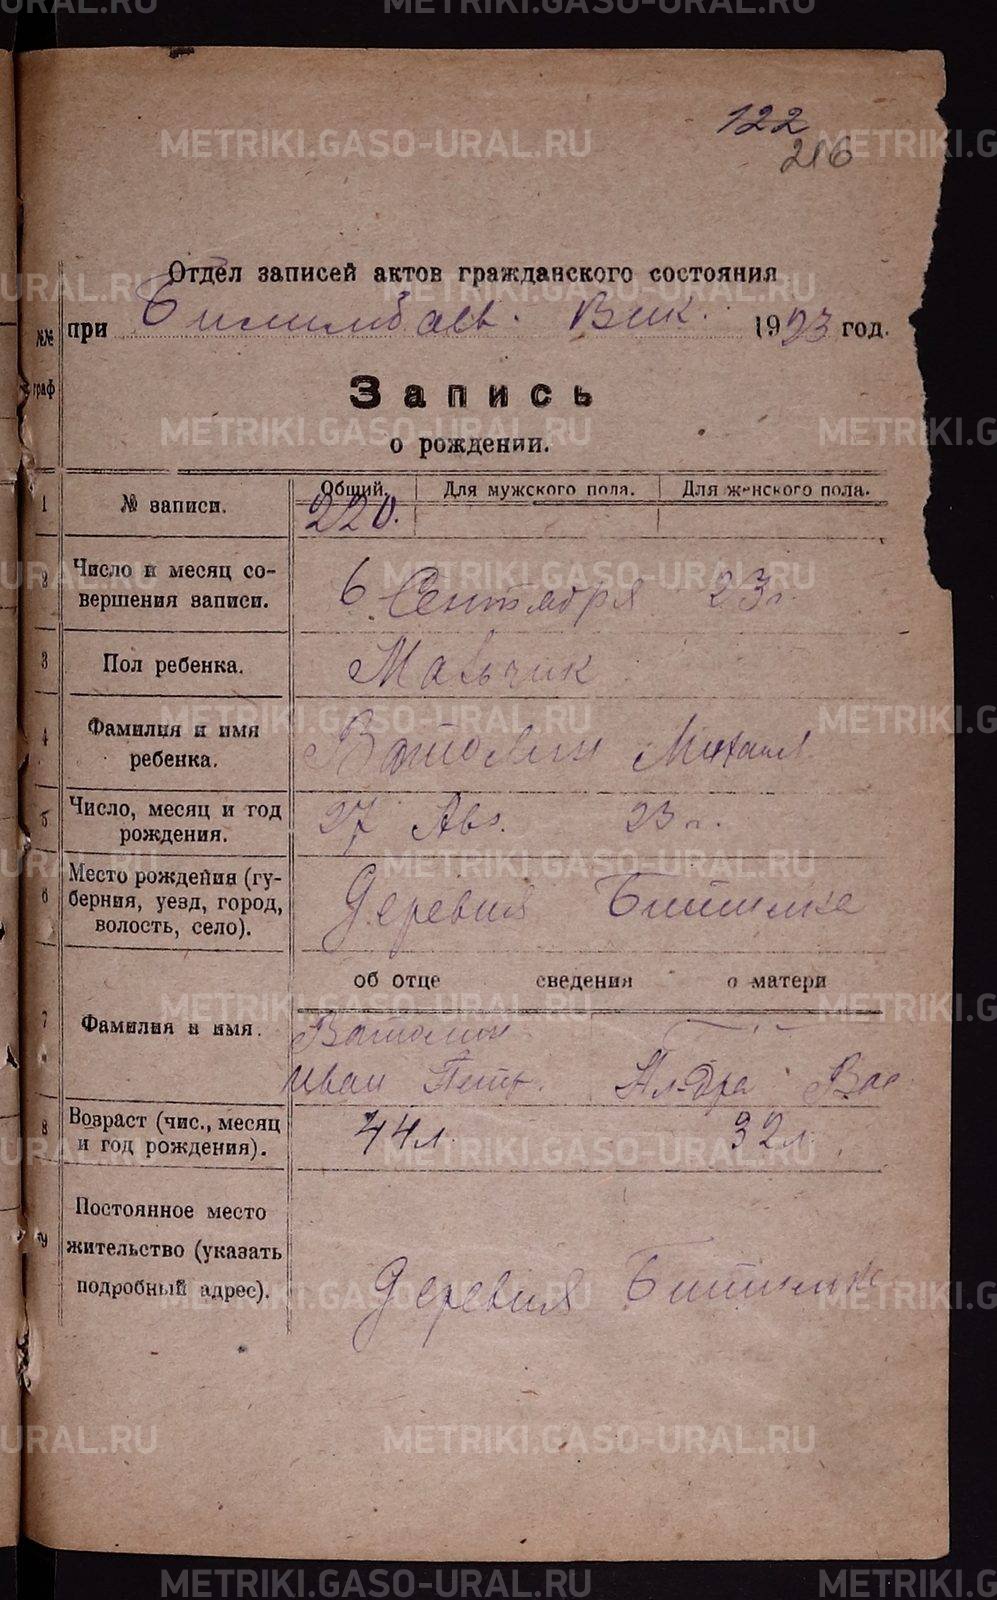 122
216
Отдел записей актов гражданского состояния
при Билимбаев. Вик. 1923 год.
№№ граф
Запись
о рождении.
Общий. Для мужского пола. Для женского пола.
1 № записи. 220.
2 Число и месяц со-
вершения записи. 6 Сентября 23 г.
3 Пол ребенка. Мальчик
4 Фамилия и имя
ребенка. Ватолин Михаил
5 Число, месяц и год
рождения. 27 Авг. 23 г.
6 Место рождения (гу-
берния, уезд, город,
волость, село). Деревня Битимке
об отце сведения о матери
7 Фамилия и имя. Ватолин
Иван Петр. Ал-дра Вас
8 Возраст (чис., месяц
и год рождения). 44 л. 32 л.
9 Постоянное место
жительство (указать
подробный адрес). Деревня Битимке
METRIKI.GASO-URAL.RU